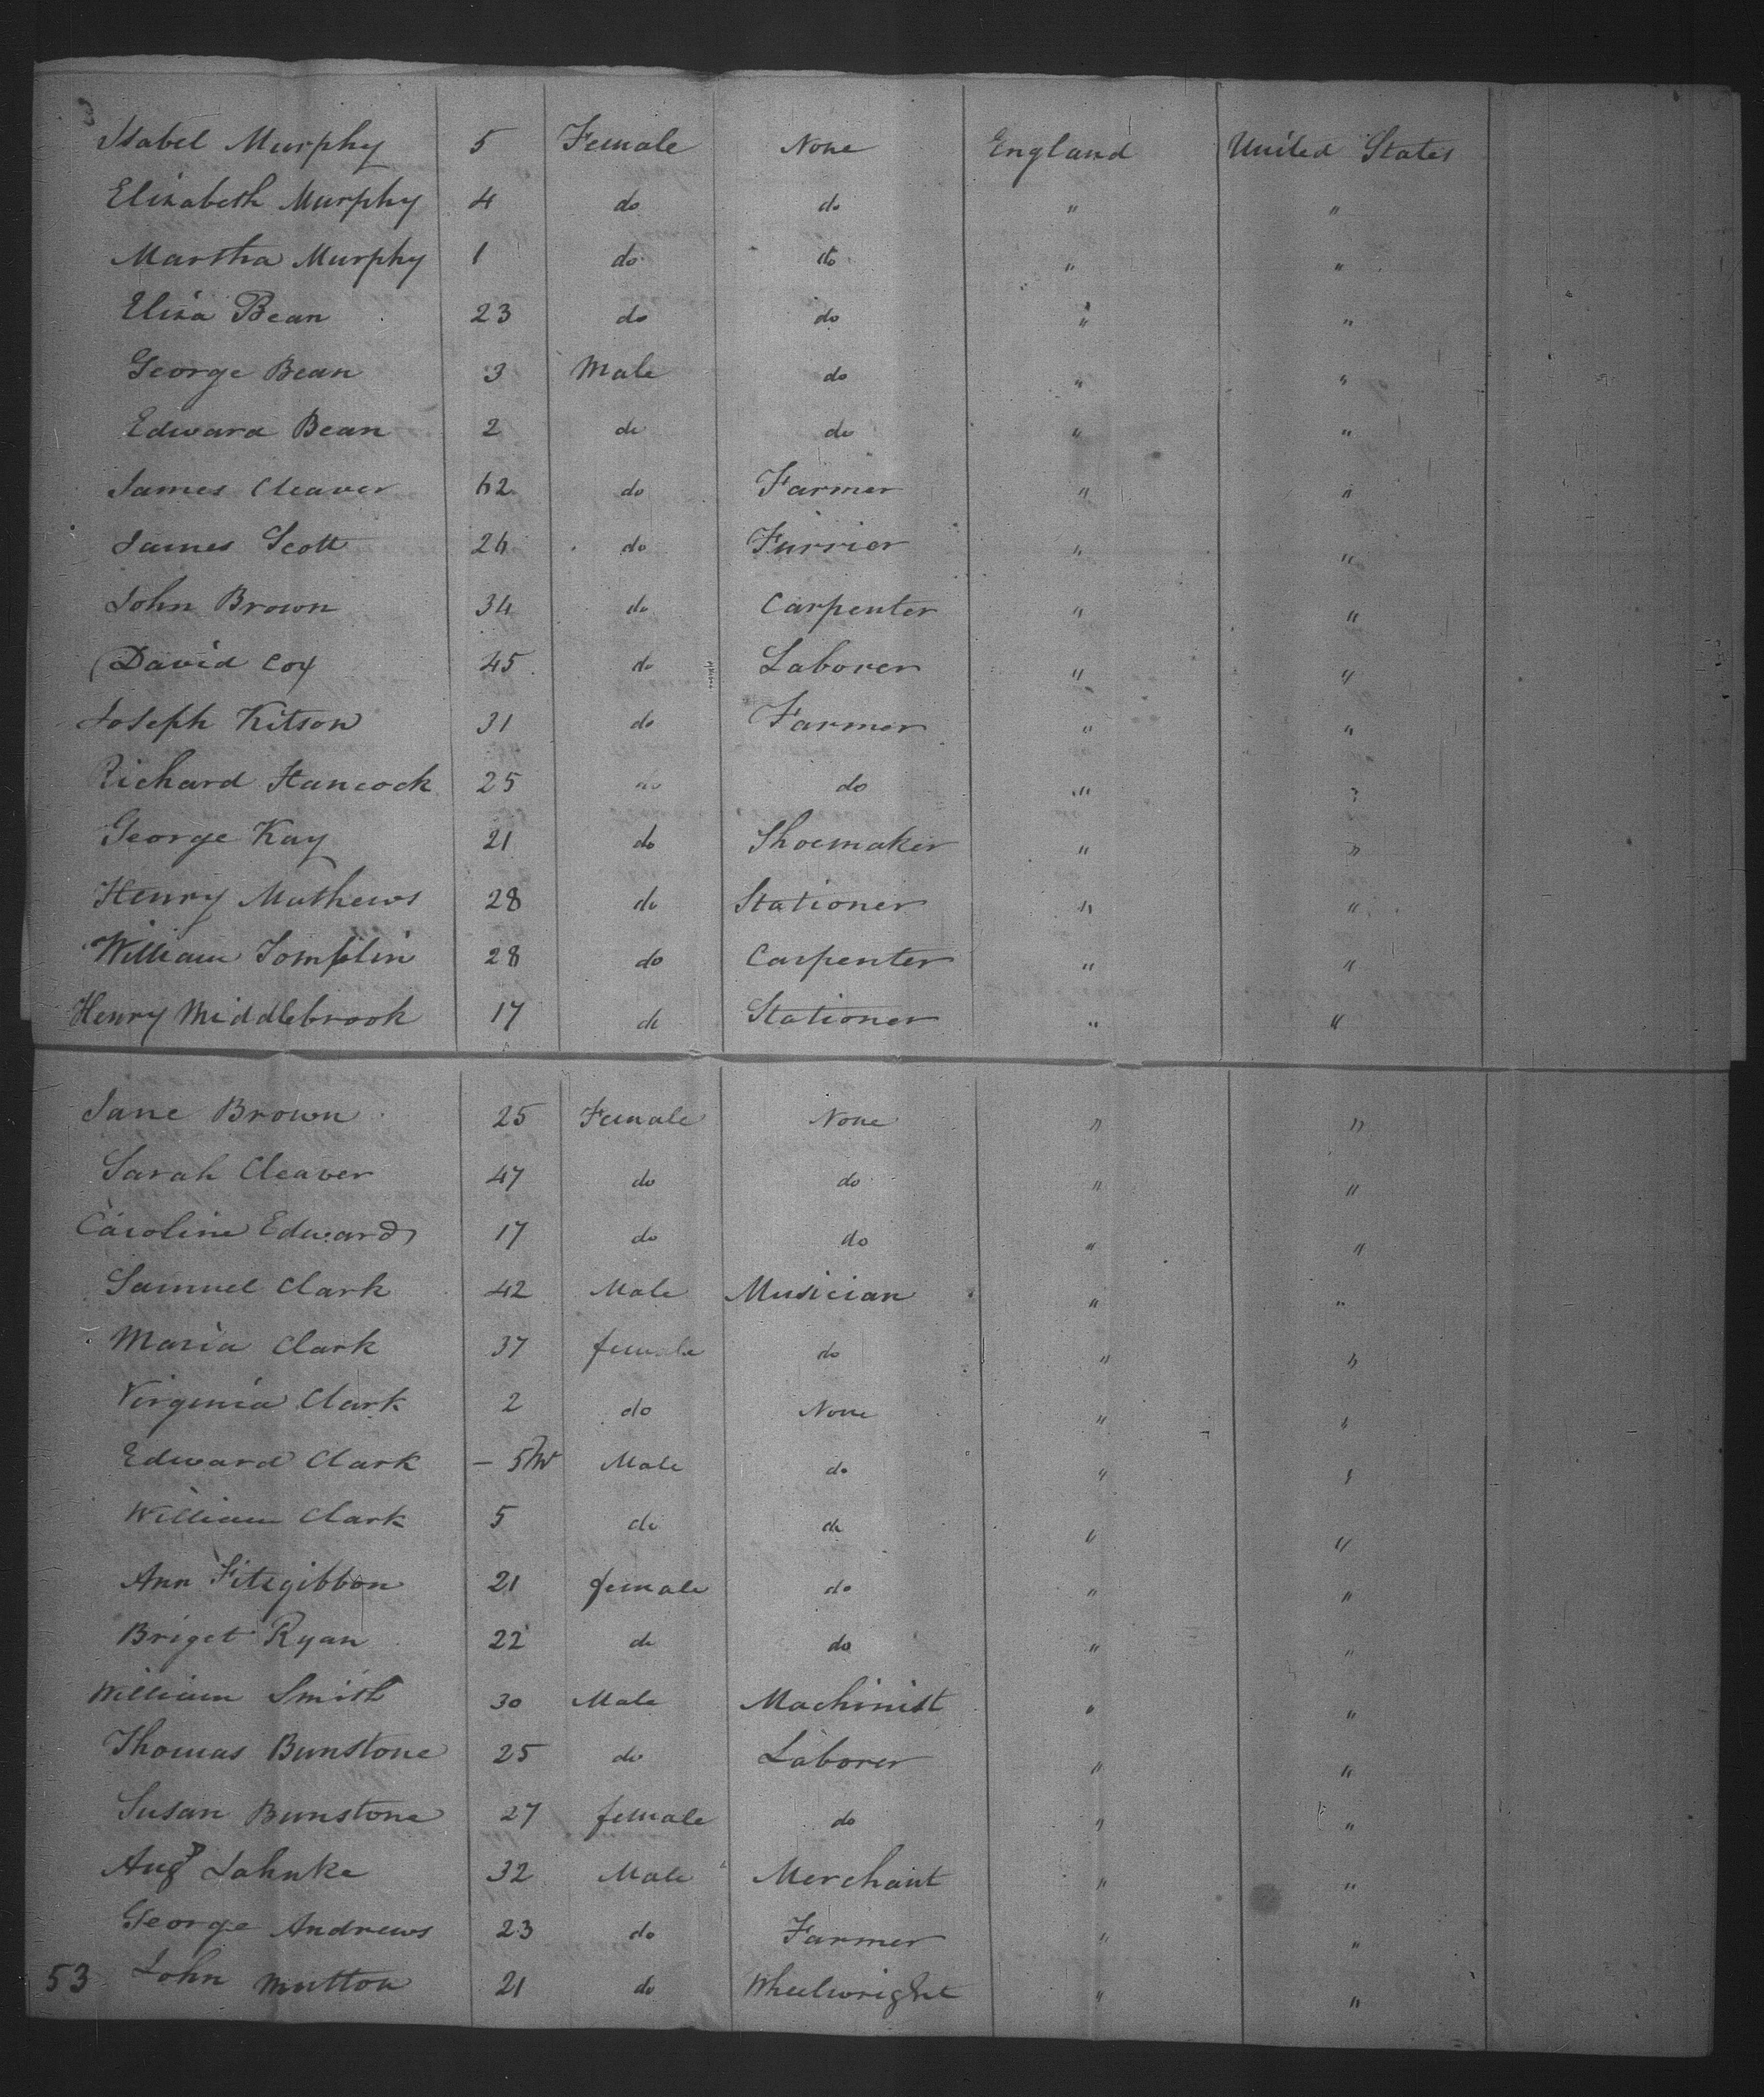 Isabel Murphy 5 Female None England United States
Elizabeth Murphy 4 do do " "
Martha Murphy 1 do do " "
Eliza Bean 23 do do " "
George Bean 3 Male do " "
Edward Bean 2 do do " "
James Cleaver 62 do Farmer " "
James Scott 26 do Furrier " "
John Brown 34 do Carpenter " "
David Cox 45 do Laborer " "
Joseph Kitson 31 do Farmer " "
Richard Hancock 25 do do " "
George Kay 21 do Shoemaker " "
Henry Mathews 28 do Stationer " "
William Tomplin 28 do Carpenter " "
Henry Middlebrook 17 do Stationer " "
Jane Brown 25 Female None " "
Sarah Cleaver 47 do do " "
Caroline Edwards 17 do do " "
Samuel Clark 42 Male Musician " "
Maria Clark 37 female do " "
Virginia Clark 2 do None " "
Edward Clark – 5 Male do " "
William Clark 5 do do " "
Ann Fitzgibbon 21 female do " "
Briget Ryan 22 do do " "
William Smith 30 Male Machinist " "
Thomas Bunstone 25 do Laborer " "
Susan Bunstone 27 female do " "
Augs Jahnke 32 Male Merchant " "
George Andrews 23 do Farmer " "
53 John Mutton 21 do Wheelwright " "